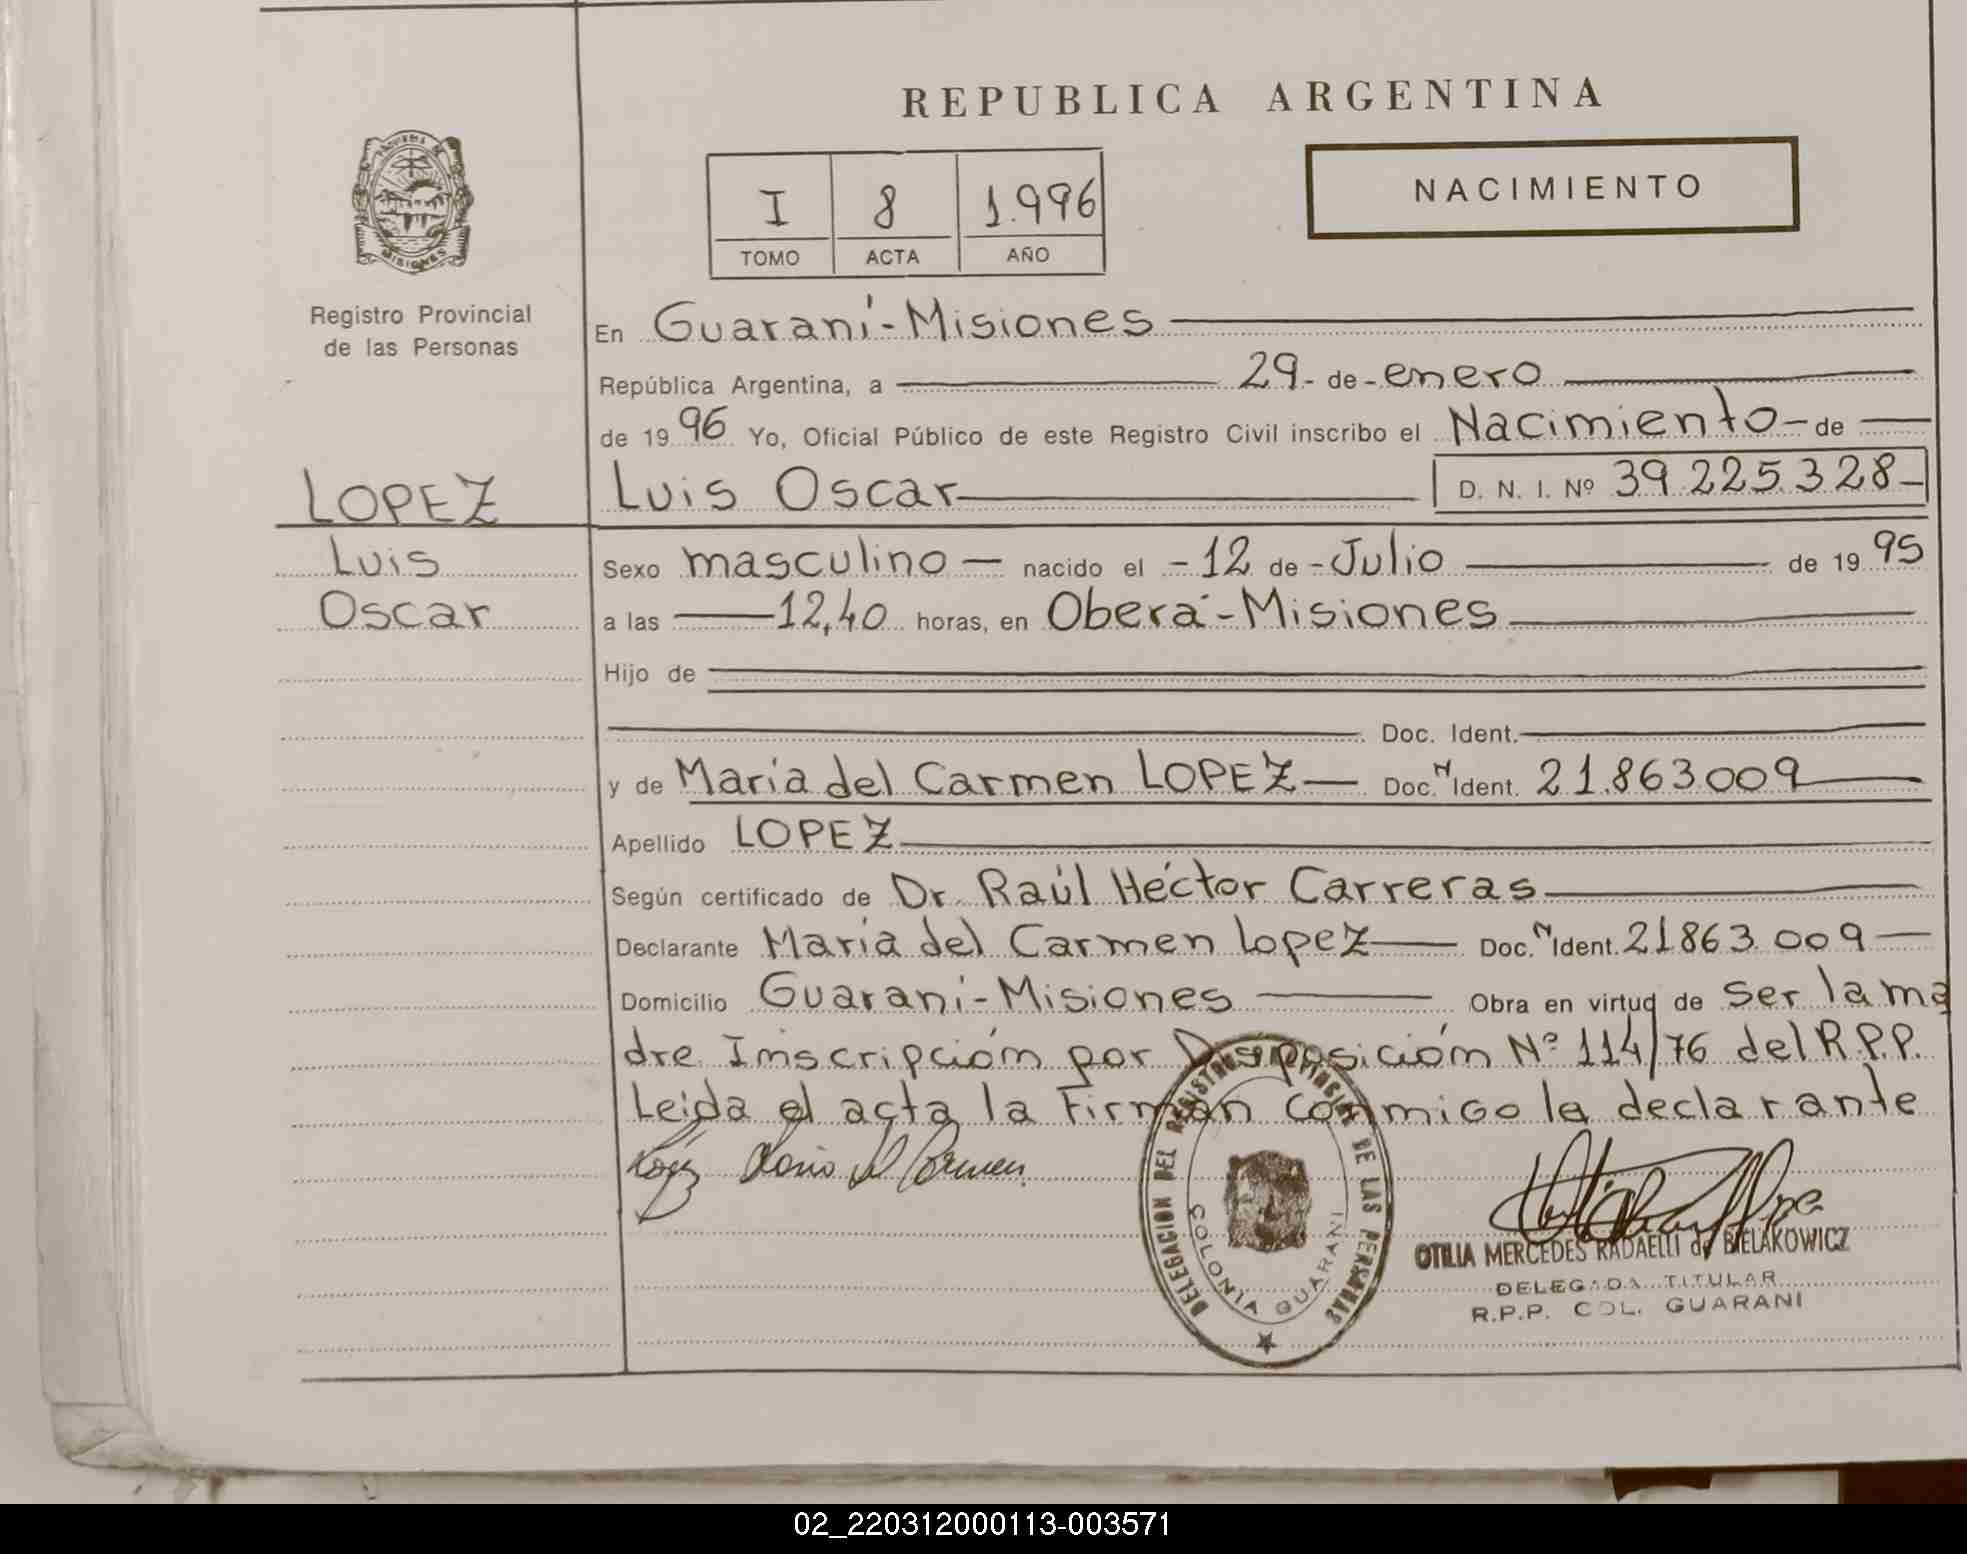 REPUBLICA ARGENTINA
NACIMIENTO
I 8 1.996
TOMO ACTA AÑO
MISIONES
Registro Provincial
de las Personas
En Guaraní-Misiones
República Argentina, a 29- de - enero
de 19 96 Yo, Oficial Público de este Registro Civil inscribo el Nacimiento - de
LOPEZ
Luis Oscar D. N. I. Nº 39.225.328-
Luis
Sexo masculino - nacido el - 12 de - Julio de 19 95
Oscar
a las 12,40 horas, en Oberá-Misiones
Hijo de
Doc. Ident.
y de María del Carmen LOPEZ - Doc. N Ident. 21.863.009
Apellido LOPEZ
Según certificado de Dr. Raúl Héctor Carreras
Declarante María del Carmen Lopez - Doc. N Ident. 21863.009 -
Domicilio Guaraní-Misiones Obra en virtud de Ser la ma
dre Inscripción por Disposición Nº 114/76 del R.P.P.
Leida el acta la Firman conmigo la declarante
López María del Carmen
DELEGACION DEL REGISTRO PROVINCIAL DE LAS PERSONAS
COLONIA GUARANI
OTILIA MERCEDES RADAELLI de BIELAKOWICZ
DELEGADA TITULAR
R.P.P. COL. GUARANI
02_220312000113-003571